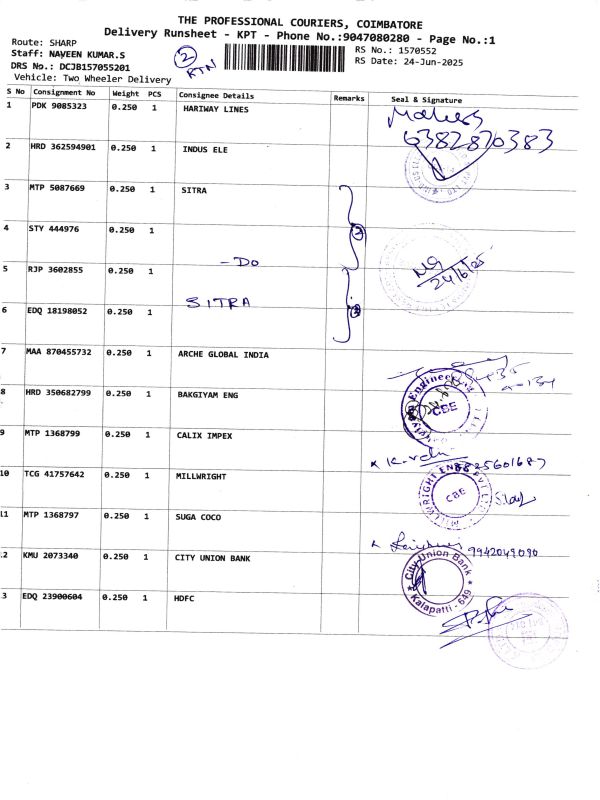 THE PROFESSIONAL COURIERS, COIMBATORE
Delivery Runsheet - KPT - Phone No.:9047080280 - Page No.:1
Route: SHARP
Staff: NAVEEN KUMAR.S
DRS No.: DCJB157055201
Vehicle: Two Wheeler Delivery
2
RTN
RS No.: 1570552
RS Date: 24-Jun-2025
S No Consignment No Weight PCS Consignee Details Remarks Seal & Signature
1 PDK 9085323 0.250 1 HARIWAY LINES
6382870383
2 HRD 362594901 0.250 1 INDUS ELE
3 MTP 5087669 0.250 1 SITRA
4 STY 444976 0.250 1
2
- DO
24/6/25
5 RJP 3602855 0.250 1
SITRA
6 EDQ 18198052 0.250 1
7 MAA 870455732 0.250 1 ARCHE GLOBAL INDIA
8 HRD 350682799 0.250 1 BAKGIYAM ENG
Engineering
CBE
9 MTP 1368799 0.250 1 CALIX IMPEX
8825601687
10 TCG 41757642 0.250 1 MILLWRIGHT
MILLWRIGHT
CBE
11 MTP 1368797 0.250 1 SUGA COCO
9942049090
12 KMU 2073340 0.250 1 CITY UNION BANK
City Union Bank
Kalapatti - 649
13 EDQ 23900604 0.250 1 HDFC